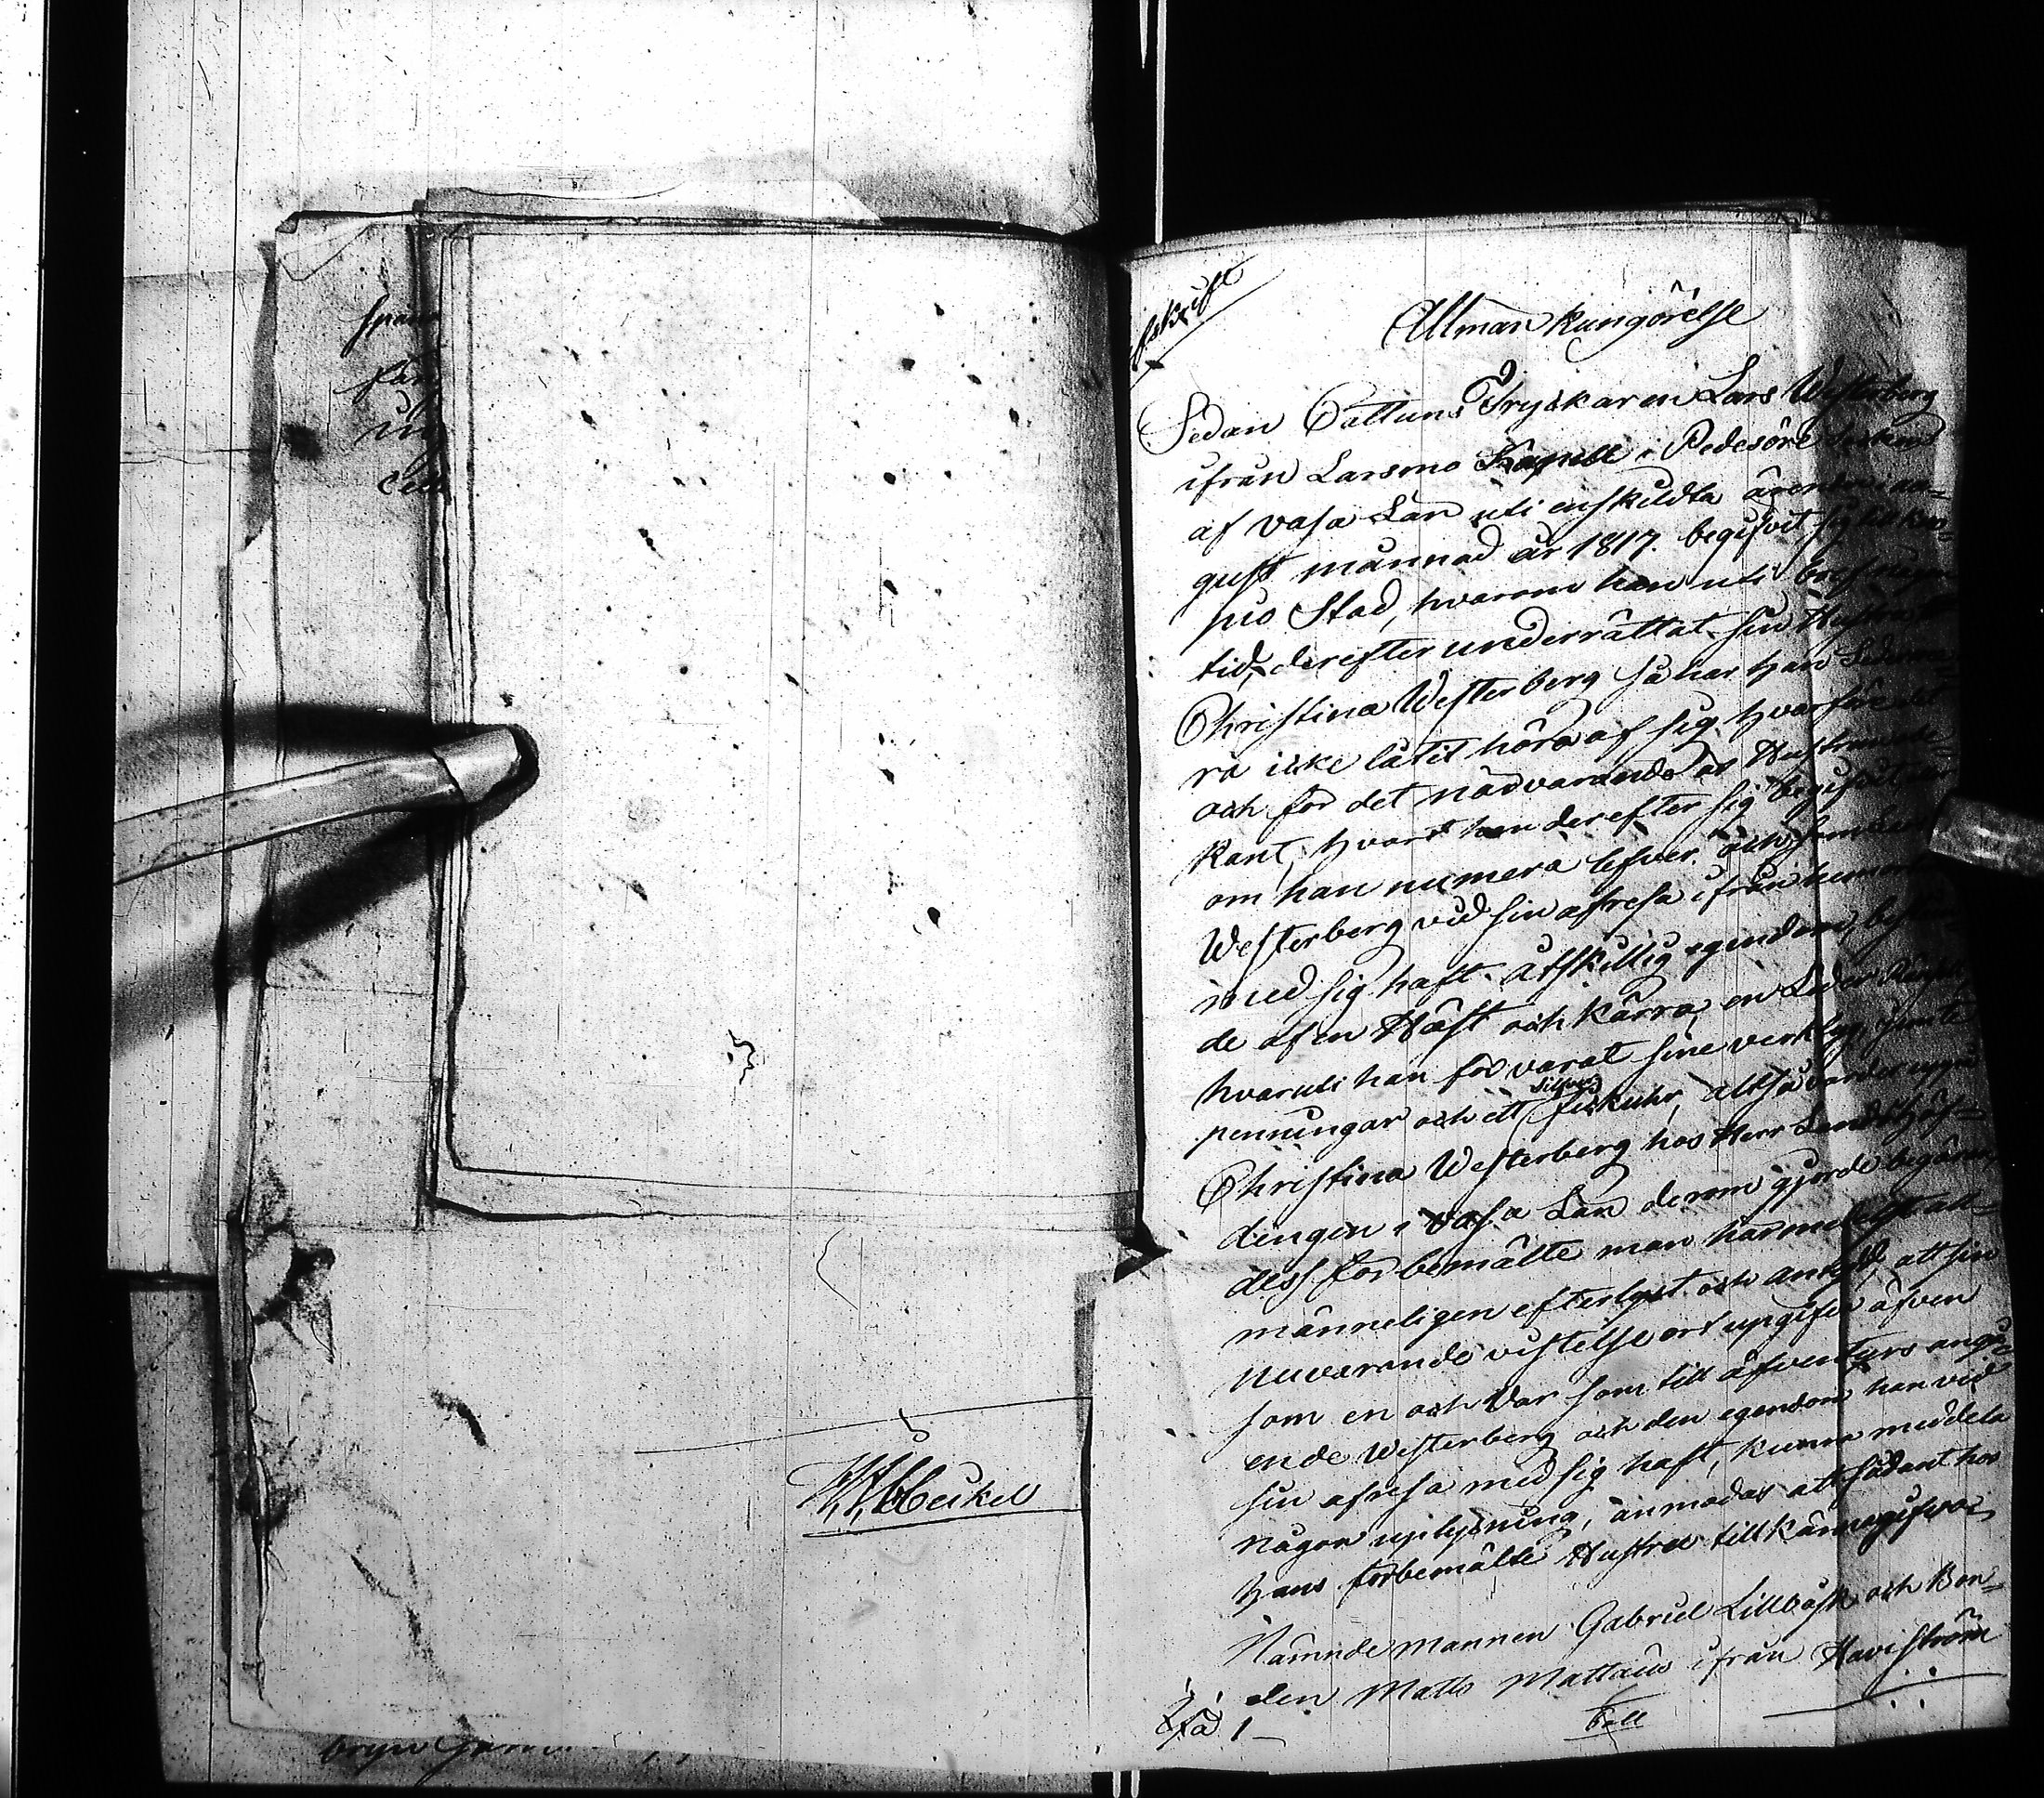 W. Heikel
Afskrift
Allmän kungörelse
Sedan Cattuns Tryckaren Lars Westerberg
ifrån Larsmo Kapell i Pedesöre Sockn
af Vasa Län uti enskildta ärender i au=
gusti månnad år 1817. begifvit sig till Kuo=
pio Stad, hvarom han uti bref någon
tid, derefter underrättat sin Hustru
Christina Westerberg så har han Sederme=
ra icke låtit höra af sig hvarföre det
och för det närvarande är Hustrun obe=
kant, hvart han derefter sig begifvit, eller
om han numera lefver. och som
Westerberg vid sin afresa ifrån hemorten
med sig haft åtskillig egendom, bestån=
de af en Häst och Kärra, en Läder
hvaruti han förvarat sine verktyg, jemte
penningar och ett silfver fickuhr, altså varder uppå
Christina Westerberg hos Herr Landshöf=
dingen i Vasa Län derom gjorde begäran,
dess förbemälte man härmedelst all=
männeligen efterlyst och antydd, att sin
nuvarande vistelse ort upgifva, äfven
som en och Var som till äfventyrs angå=
ende Westerberg och den egendom han vid
sin afresa med sig haft, kunna meddela
någon uplysning, anmodas att sådant hos
hans förbemälte Hustru tillkännagifva.
Nämndemannen Gabriel Lillbåsk och Bon=
den Matts Mattsus ifrån Haviström